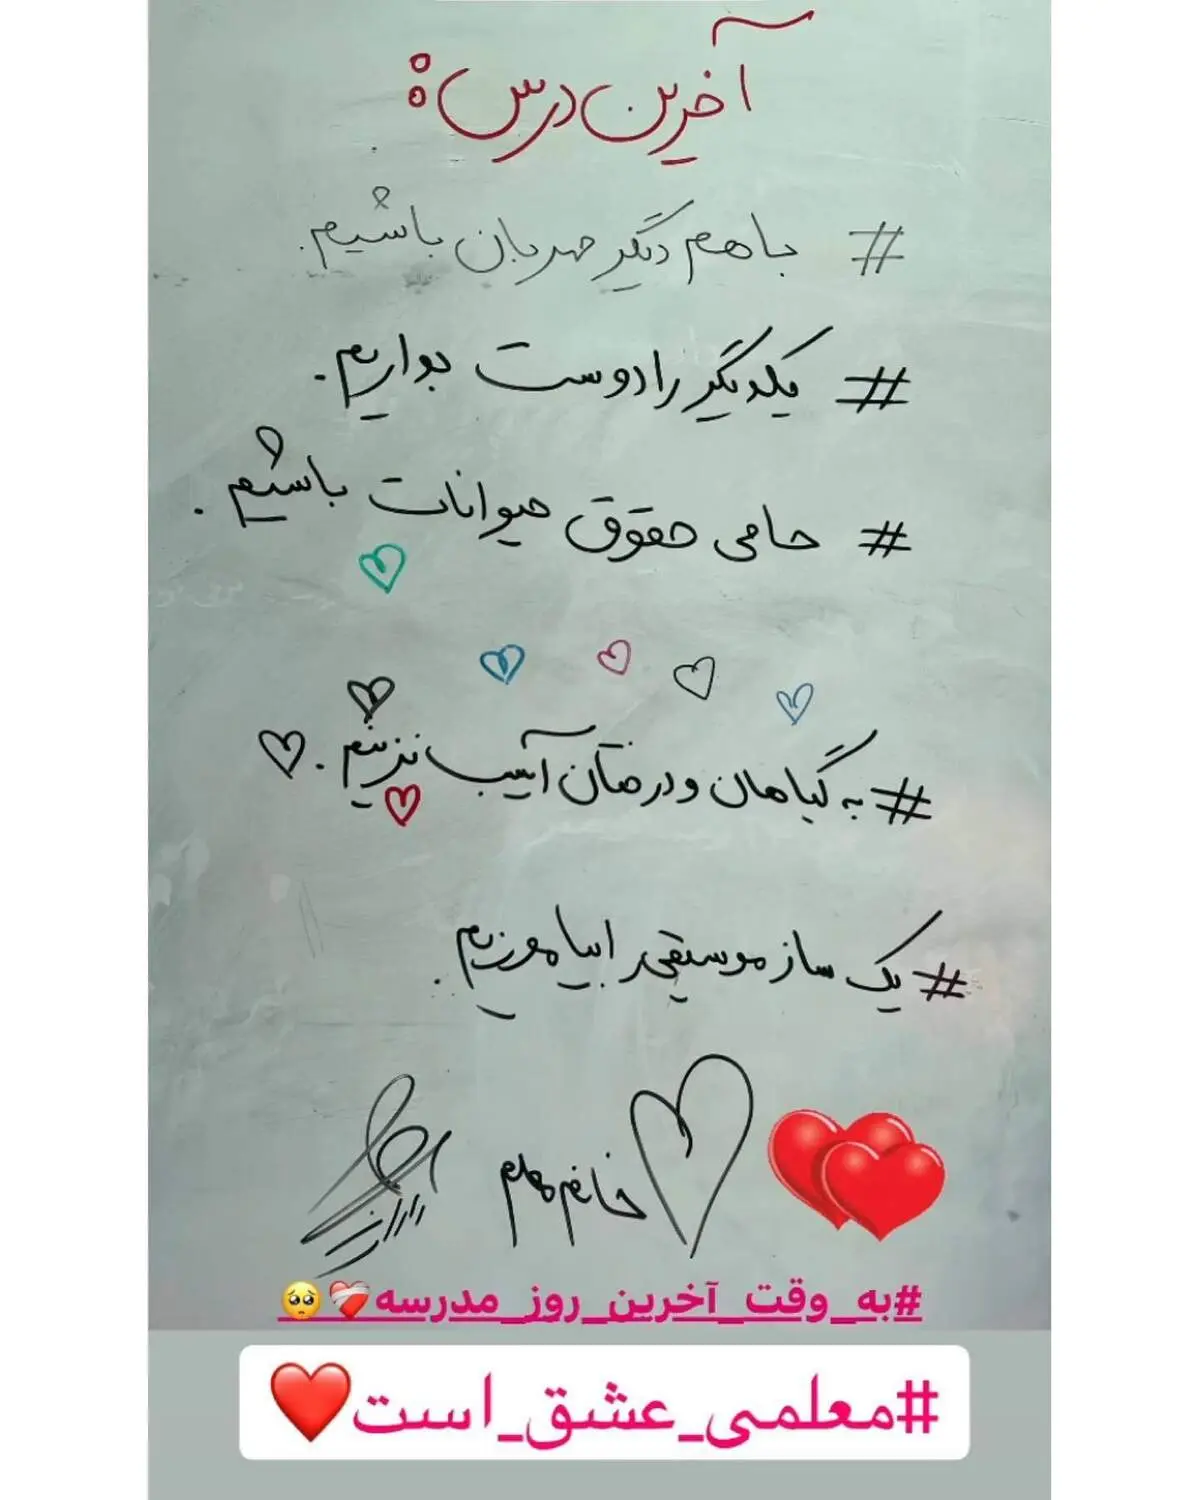 آخرین درس:
# باهم دیگر مهربان باشیم.
# یکدیگر را دوست بداریم.
# حامی حقوق حیوانات باشیم.
# به گیاهان و درختان آسیب نزنیم.
# یک ساز موسیقی را بیاموزیم.
خانم
#به_وقت_آخرین_روز_مدرسه❤️‍🩹🥺
#معلمی_عشق_است❤️